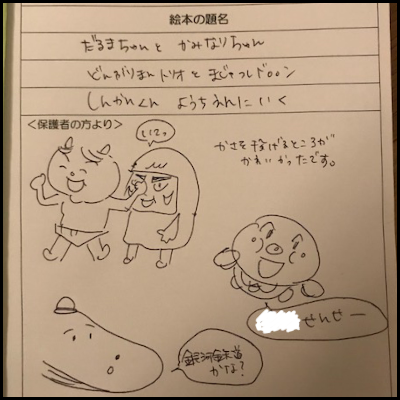 絵本の題名
だるまちゃんと かみなりちゃん
どんぐりまん トリオと まじゃっしドロロン
しんかんくん ようちえんにいく
<保護者の方より>
いてっ
かさを投げるところが
かわいかったです。
せんせー
銀河鉄道
かな?